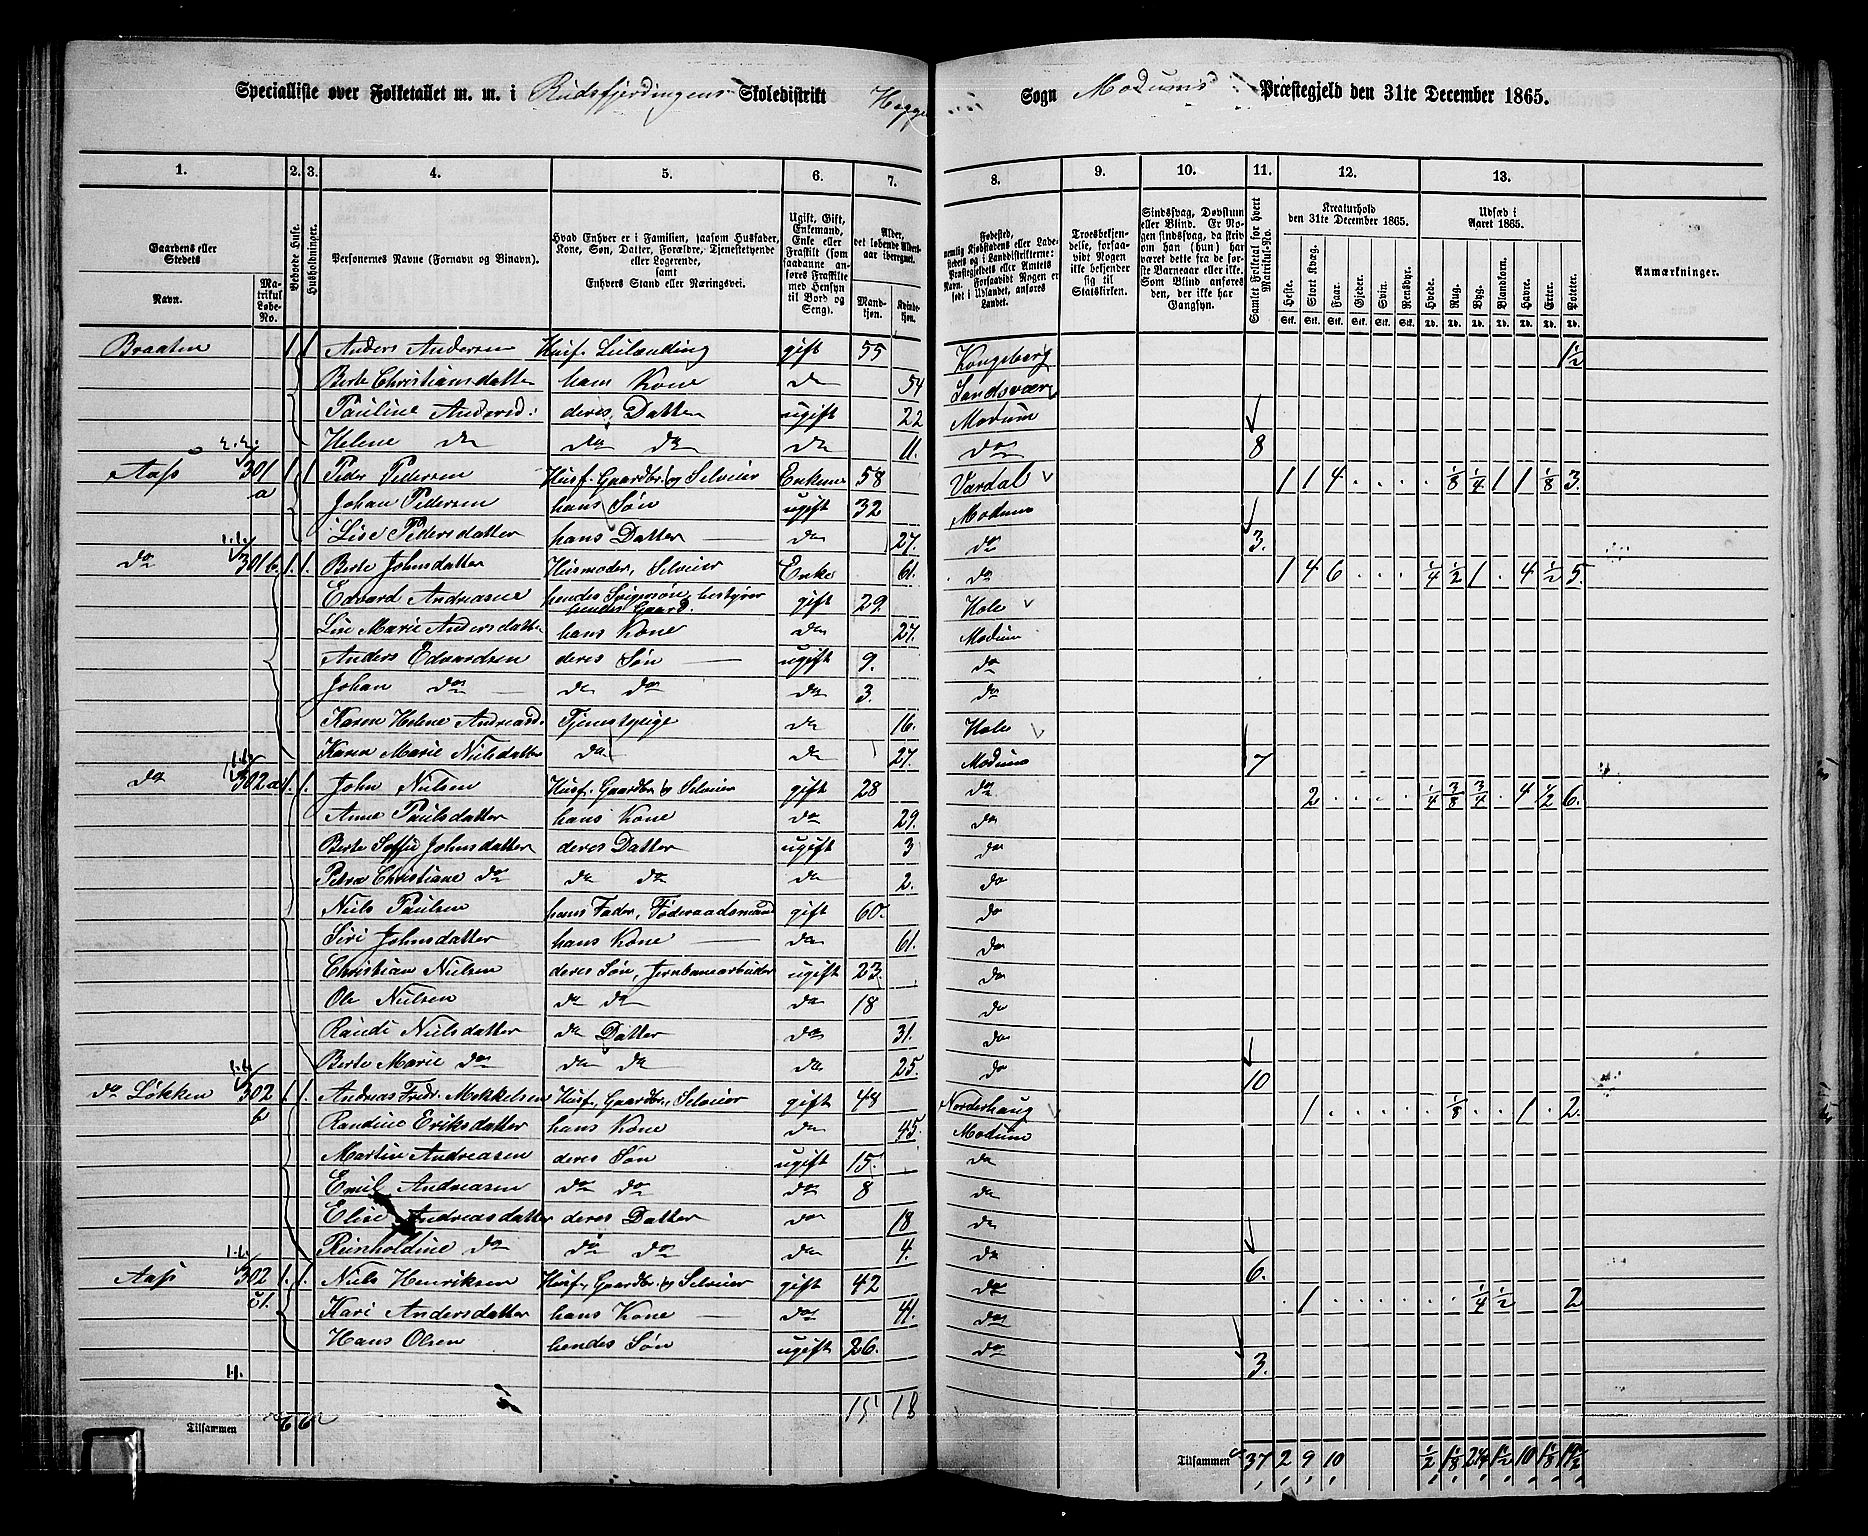 Specialliste over Folketallet m. m. i Rudsfjerdingens Skoledistrikt Hegge Sogn Modums Præstegjeld den 31te December 1865.
1. 2. 3. 4. 5. 6. 7. 8. 9. 10. 11. 12. 13.
Gaardens eller Stedets Navn. Matrikul Løbe-No. Beboede Huse. Husholdninger. Personernes Navne (Fornavn og Binavn). Hvad Enhver er i Familien, saasom Husfader, Kone, Søn, Datter, Forældre, Tjenestetyende eller Logerende, samt Enhvers Stand eller Næringsvei. Ugift, Gift, Enkemand, Enke eller Fraskilt (som saadanne anføres Fraskilte med Hensyn til Bord og Seng). Alder, det løbende Alders-aar iberegnet. Mandkjøn. Kvindekjøn. Fødested, Trosbekjendelse, forsaavidt Nogen ikke bekjender sig til Statskirken. Sindssvag, Døvstum eller Blind. Samlet Folketal for hvert Matrikul-No. Kreaturhold den 31te December 1865. Heste. Stort Kvæg. Faar. Gjeder. Svin. Rensdyr. Udsæd i Aaret 1865. Hvede. Rug. Byg. Blandkorn. Havre. Erter. Poteter. Anmærkninger.
Braaten 1 1 Anders Andersen Husf. Leilænding gift 55 Kongsberg 1½
Berte Christiansdatter hans Kone do 54 Sandsvær
Pauline Andersd: deres Datter ugift 22 Modum
Helene do do do do 11. do 8
Aass 301 a 1 1 Peder Pedersen Husf. Gaardbr. og Selveier Enkem 58 Vardal 1 1 4 . . . . 1/8 1/4 1 1 1/8 3.
Johan Pedersen hans Søn ugift 32 Modum
Lise Pedersdatter hans Datter do 27. do 3.
do 301 b 1. 1. Berte Johnsdatter Husmoder, Selveier Enke 61. do 1 4 6 . . . 1/4 1/2 1 . 4 1/2 5.
Edvard Andreasen hendes Svigersøn, bestyrer hendes Gaard. gift 29 Hole
Lise Marie Andersdatter hans Kone do 27. Modum
Anders Edvardsen deres Søn ugift 9. do
Johan do do do do 3. do
Karen Helene Andreasd. Tjenestpige do 16. Hole
Karen Marie Nielsdatter do do 27. Modum 7
do 302 a 1. 1. John Nielsen Husf. Gaardbr. og Selveier gift 28 do 2 . . . . 1/4 3/8 3/4 . 4 1/2 6.
Anne Paulsdatter hans Kone do 29. do
Berte Soffie Johnsdatter deres Datter ugift 3 do
Petra Christiane do do do do 2. do
Niels Paulsen hans Fader, Føderaadsmand gift 60. do
Siri Johnsdatter hans Kone do 61. do
Christian Nielsen deres Søn, Jernbanearbeider ugift 23. do
Ole Nielsen do do do 18 do
Randi Nielsdatter do Datter do 31. do
Berte Marie do do do do 25. do 10
do Løkken 302 b 1. 1. Andreas Fredr. Mekkelsen Husf. Gaardbr., Selveier gift 48 Norderhaug 1 . . . . . 1/8 . . 1 . 2.
Randine Eriksdatter hans Kone do 45. Modum
Martin Andreasen deres Søn ugift 15. do
Emil Andreasen do do do 8 do
Elise Andreasdatter deres Datter do 18 do
Reinholdine do do do do 4. do 6.
Aass 302 1. 1. Niels Henriksen Husf. Gaardbr. og Selveier gift 42 do 1 . . . . . . 1/4 1/2 2
Kari Andersdatter hans Kone do 41. do
Hans Olsen hendes Søn ugift 26. do 3.
Tilsammen 6 6 15 18
Tilsammen 37 2 9 10 1/2 1 1/8 1½ 10 1 1/8 17½